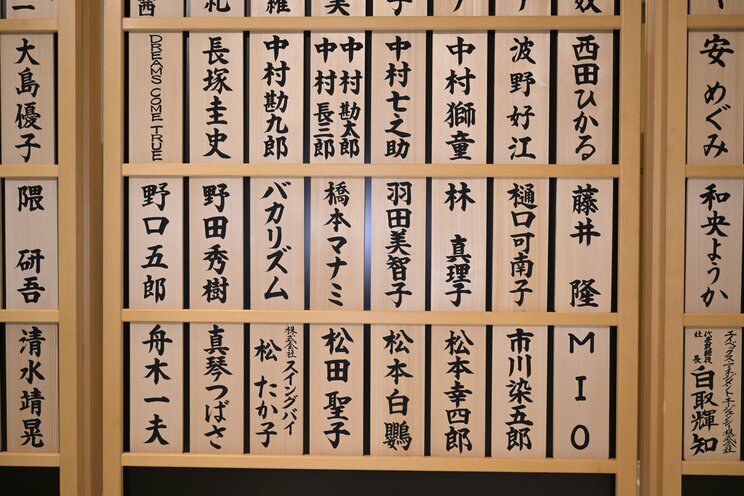 安 めぐみ
和央ようか
白取輝知
西田ひかる
波野好江
中村獅童
中村七之助
中村 勘太郎
中村 長三郎
中村勘九郎
長塚圭史
DREAMS COME TRUE
藤井 隆
樋口可南子
林 真理子
羽田美智子
橋本マナミ
バカリズム
野田秀樹
野口五郎
MIO
市川染五郎
松本幸四郎
松本白鸚
松田聖子
株式会社スイングバイ
松 たか子
真琴つばさ
舟木一夫
大島優子
隈 研吾
清水靖晃